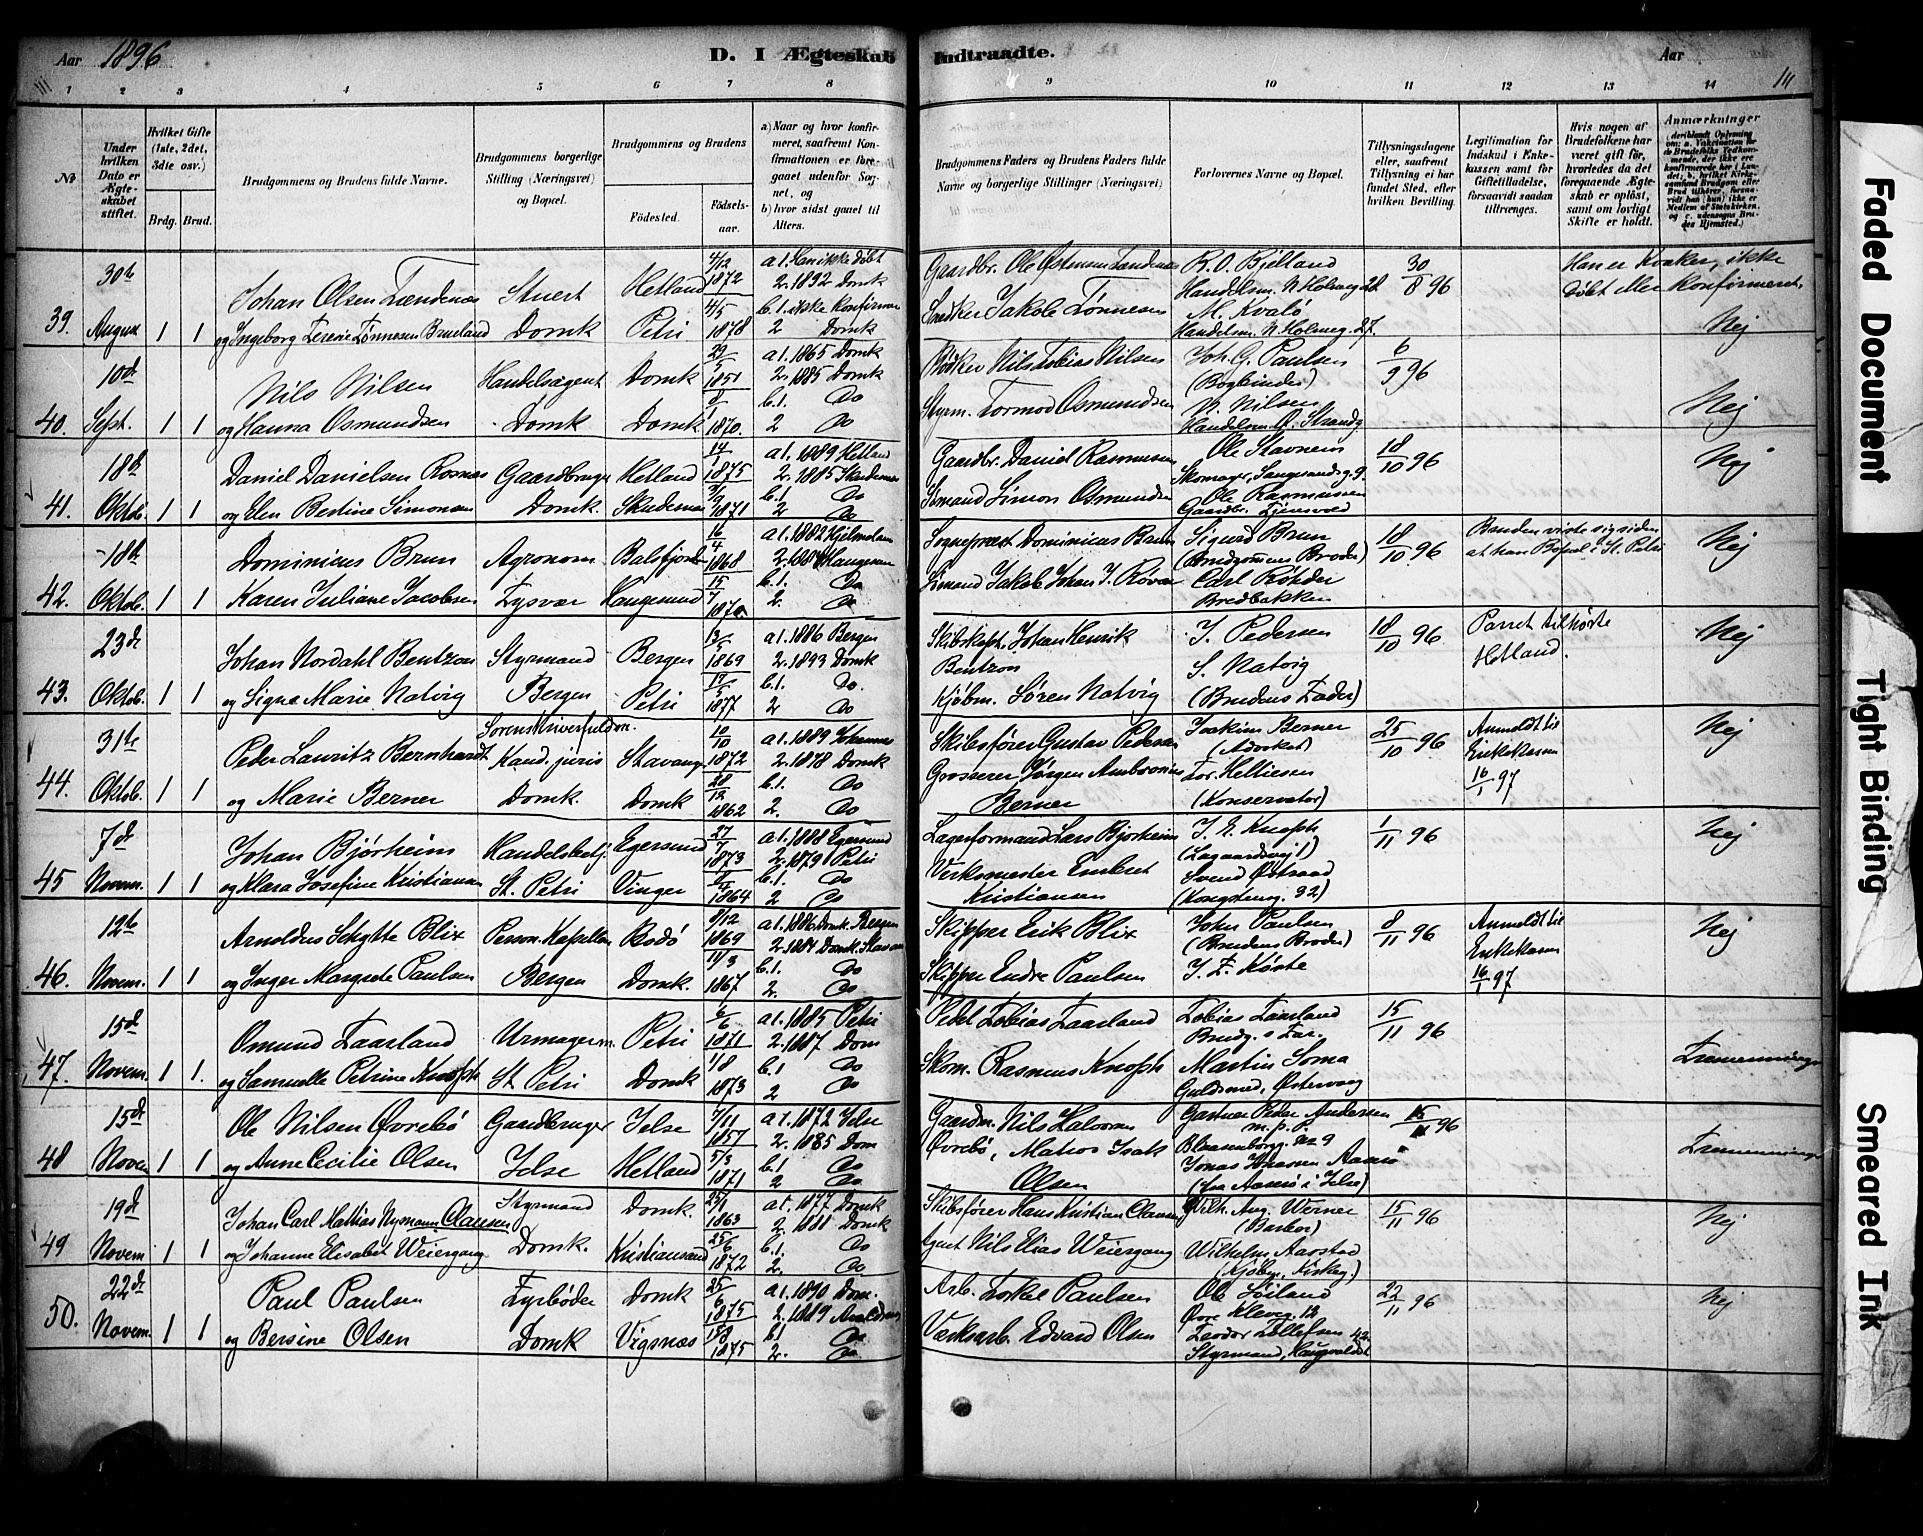 Aar 1896
D. I Ægteskab Indtraadte.
Aar
1 2 3 4 5 6 7 8 9 10 11 12 13 14
No
Under hvilken Dato er Ægteskabet stiftet.
Hvilket Gifte (1ste, 2det, 3die osv.)
Brdg. Brud.
Brudgommens og Brudens fulde Navne.
Brudgommens borgerlige Stilling (Næringsvei) og Bopæl.
Brudgommens og Brudens
Fødested.
Fødselsaar.
a) Naar og hvor konfirmeret, saafremt Konfirmationen er foregaaet udenfor Sognet, og
b) hvor sidst gaaet til Alters.
Brudgommens Faders og Brudens Faders fulde Navne og borgerlige Stillinger (Næringsvei)
Forlovernes Navne og Bopæl.
Tillysningsdagene eller, saafremt Tillysning ei har fundet Sted, efter hvilken Bevilling.
Legitimation for Indskud i Enkekassen samt for Giftetilladelse, forsaavidt saadan tiltrænges.
Hvis nogen af Brudefolkene har været gift før, hvorledes da det foregaaende Ægteskab er opløst, samt om lovligt Skifte er holdt.
Anmærkninger
39. 30te August 1 1
Johan Olsen Tændenæs Stuert Hetland 4/12 1872
og Ingeborg Serene Tønnesen Brueland Domk Petri 4/5 1878
a 1. Han ikke døbt
2. 1892 Domk
b. 1. ikke konfirmer
2 Domk
Gaardbr. Ole Østensen Tændenæs
Snedker Jakob Tønnesen
R. O. Bjelland
Handelsm. N. Holmeg 28
M. Kvalø
Handelsm. N. Holmeg. 27.
30/8 96
Han er Kvæker, ikke døbt eller konfirmeret.
Nej
40. 10de Sept. 1 1
Nils Nilsen Handelsagent Domk 1851
og Hanna Osmundsen Domk Domk 1870.
a 1. 1865 Domk
2. 1885 Domk
b. 1. Do
2 Do
Bødker Nils Tobias Nilsen
Styrm. Tormod Osmundsen
Joh. G. Paulsen
(Bogbinder)
N. Nilsen
Handelsm. Ø. Strandg
6/9 96
Nej
41. 18de Oktob. 1 1
Daniel Danielsen Rosnæs Gaardbruger Hetland 14/1 1875
og Elen Bertine Simonsen Domk. Skudesnæs 9/9 1871
a 1. 1889 Hetland
2. 1885 Skudesnæs
b. 1 Do
2 Do
Gaardbr. Daniel Rasmussen
Sømand Simon Osmundsen
Ole Stavnem
Skomager, Langesandsg. 9.
Ole Rasmussen
Gaardbr. Tjensvold
18/10 96
Nej
42. 18de Oktob. 1 1
Dominicus Brun Agronom Balsfjorden 16/4 1868
Karen Juliane Jacobsen Tysvær Haugesund 15/7 1870
b. 1. Do
2. Do
Sognepræst Dominicus Brun
Sømand Jakob Johan J. Røvær
Sigurd Brun
(Brudgommens Broder)
Carl Røhder
Bredbakken
18/10 96
Bruden viste sig siden at han Bopæl i St. Petri
Nej
43. 23de Oktob. 1 1
Johan Nordahl Bentzon Styrmand Bergen 13/5 1869
og Signe Marie Natvig Bergen Petri 17/5 1877
a 1. 1886 Bergen
2. 1893 Domk
b. 1. Do.
2 Do
Skibskapt. Johan Henrik Bentzon
Kjøbm. Søren Natvig
J. Pedersen
S. Natvig
(Brudens Fader)
18/10 96
Parret tilhørte Hetland.
Nej
44. 31te Oktob. 1 1
Sorenskriverfuldm.
Peder Lauritz Bernhardt Kand. juris Stavanger 10/10 1872
og Marie Berner Domk. Domk 28/12 1862
a 1. 1889 Johannes
2. 1878 Domk
b. 1. Do
2. Do
Skibsfører Gustav Pedersen
Grosserer Jørgen Ambrosius Berner
Joakim Berner
(Advokat)
Tor. Helliesen
(Konservator)
25/10 96
Anmeldt til Enkekassen 16/1 97
Nej
45 7de Novem. 1 1
Johan Bjørheim Handelsbetj. Egersund 27/7 1873
og Klara Josefine Kristiansen St. Petri Vinger 1864
a 1. 1888 Egersund
2. 1879 Petri
b. 1. Do
2 Do
Lagerformand Lars Bjørheim
Verksmester Embret Kristiansen
J. E. Knoph
(Lagaardsvej 1)
Svend Østraad
(Kongsteng. 32)
1/11 96
Nej
46. 12te Novem. 1 1
Arnoldus Schytte Blix Person. Kapellan Bodø 9/12 1869
og Inger Margrete Paulsen Bergen Domk. 11/3 1867
a 1. 1886 Domk. Bergen
2. 1881 Domk. Stavan
b. 1. Do
2. Do
Skipper Erik Blix
Skipper Endre Paulsen
John Paulsen
(Brudens Broder)
J. Z. Kørte
8/11 96
Anmeldt til Enkekassen 16/1 97
Nej
47. 15de Novem. 1 1.
Omund Taarland Urmagerm. Petri 6/6 1871
og Samuelle Petrine Knoph St Petri Domk 1/8 1873
a 1. 1885 Petri
2. 1887 Dom
b. 1 Do
2 Do
Pedel Tobias Taarland
Skom. Rasmus Knoph
Tobias Taarland
Brudg. s Far.
Martin Soma
Guldsmed, Østervaag
15/11 96
Tremenninger
48 15de Novem 1 1
Ole Nilsen Øvrebø Gaardbruger Jelse 7/11 1857
og Anne Cecilie Olsen Jelse Hetland 5/3 1871
a 1. 1872 Jelse
2. 1885 Dom
b. 1 Do
2 Do
Gaardm. Nils Halvorsen Øvrebø, Matros Isak Olsen
Gartner Peder Andersen
m. p. P.
Blaasenborgg. No 9
(fra Aasmø i Jelse)
15/11 96
Tremenninger
49 19de Novem 1 1
Johan Carl Mathias Nymann Clausen Styrmand Domk. 25/1 1863
og Johanne Elisabet Weiergang Domk. Kristiansand 25/6 1872
a 1. 1877 Domk
2. 1888 Domk
b. 1. Do
2. Do
Skibsfører Hans Kristian Clausen
Agent Nils Elias Weiergang
Wilh. Aug. Werner
(Barber)
Wilhelm Aarstad
(Kjøbm. Kirkeg.)
15/11 96
Nej
50. 22de Novem. 1 1
Paul Paulsen Fyrbøder Domk 25/6 1875
og Bersine Olsen Domk Vigsnæs 15/8 1875
a 1. 1890 Dom.
2. 1889 Avaldsnæs
b 1 Do
2. Do
Arb. Torkel Paulsen
Værksarb. Edvard Olsen
Ole Soiland
Øvre Kleveg. 12
Teodor Tollefsen
Styrmand, Haugvaldst 42
22/11 96
Nej
Faded Document
Tight Binding
Smeared Ink